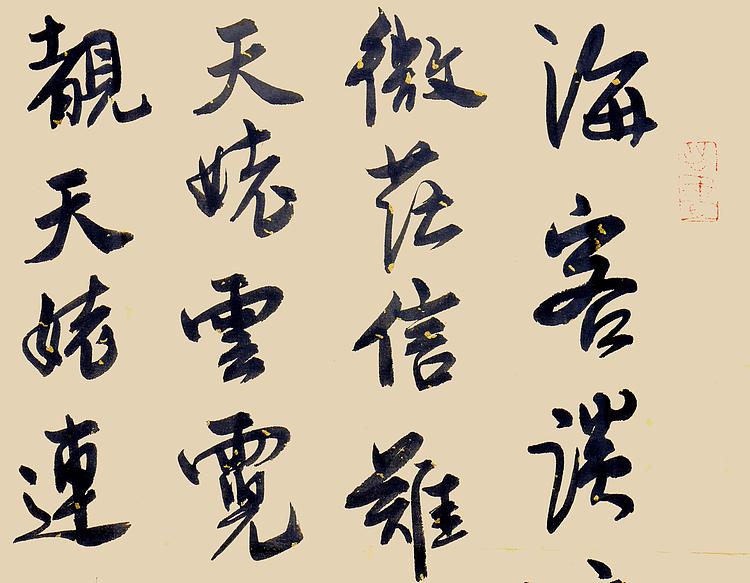 海客談
微茫信難
天姥雲霓
覩天姥連